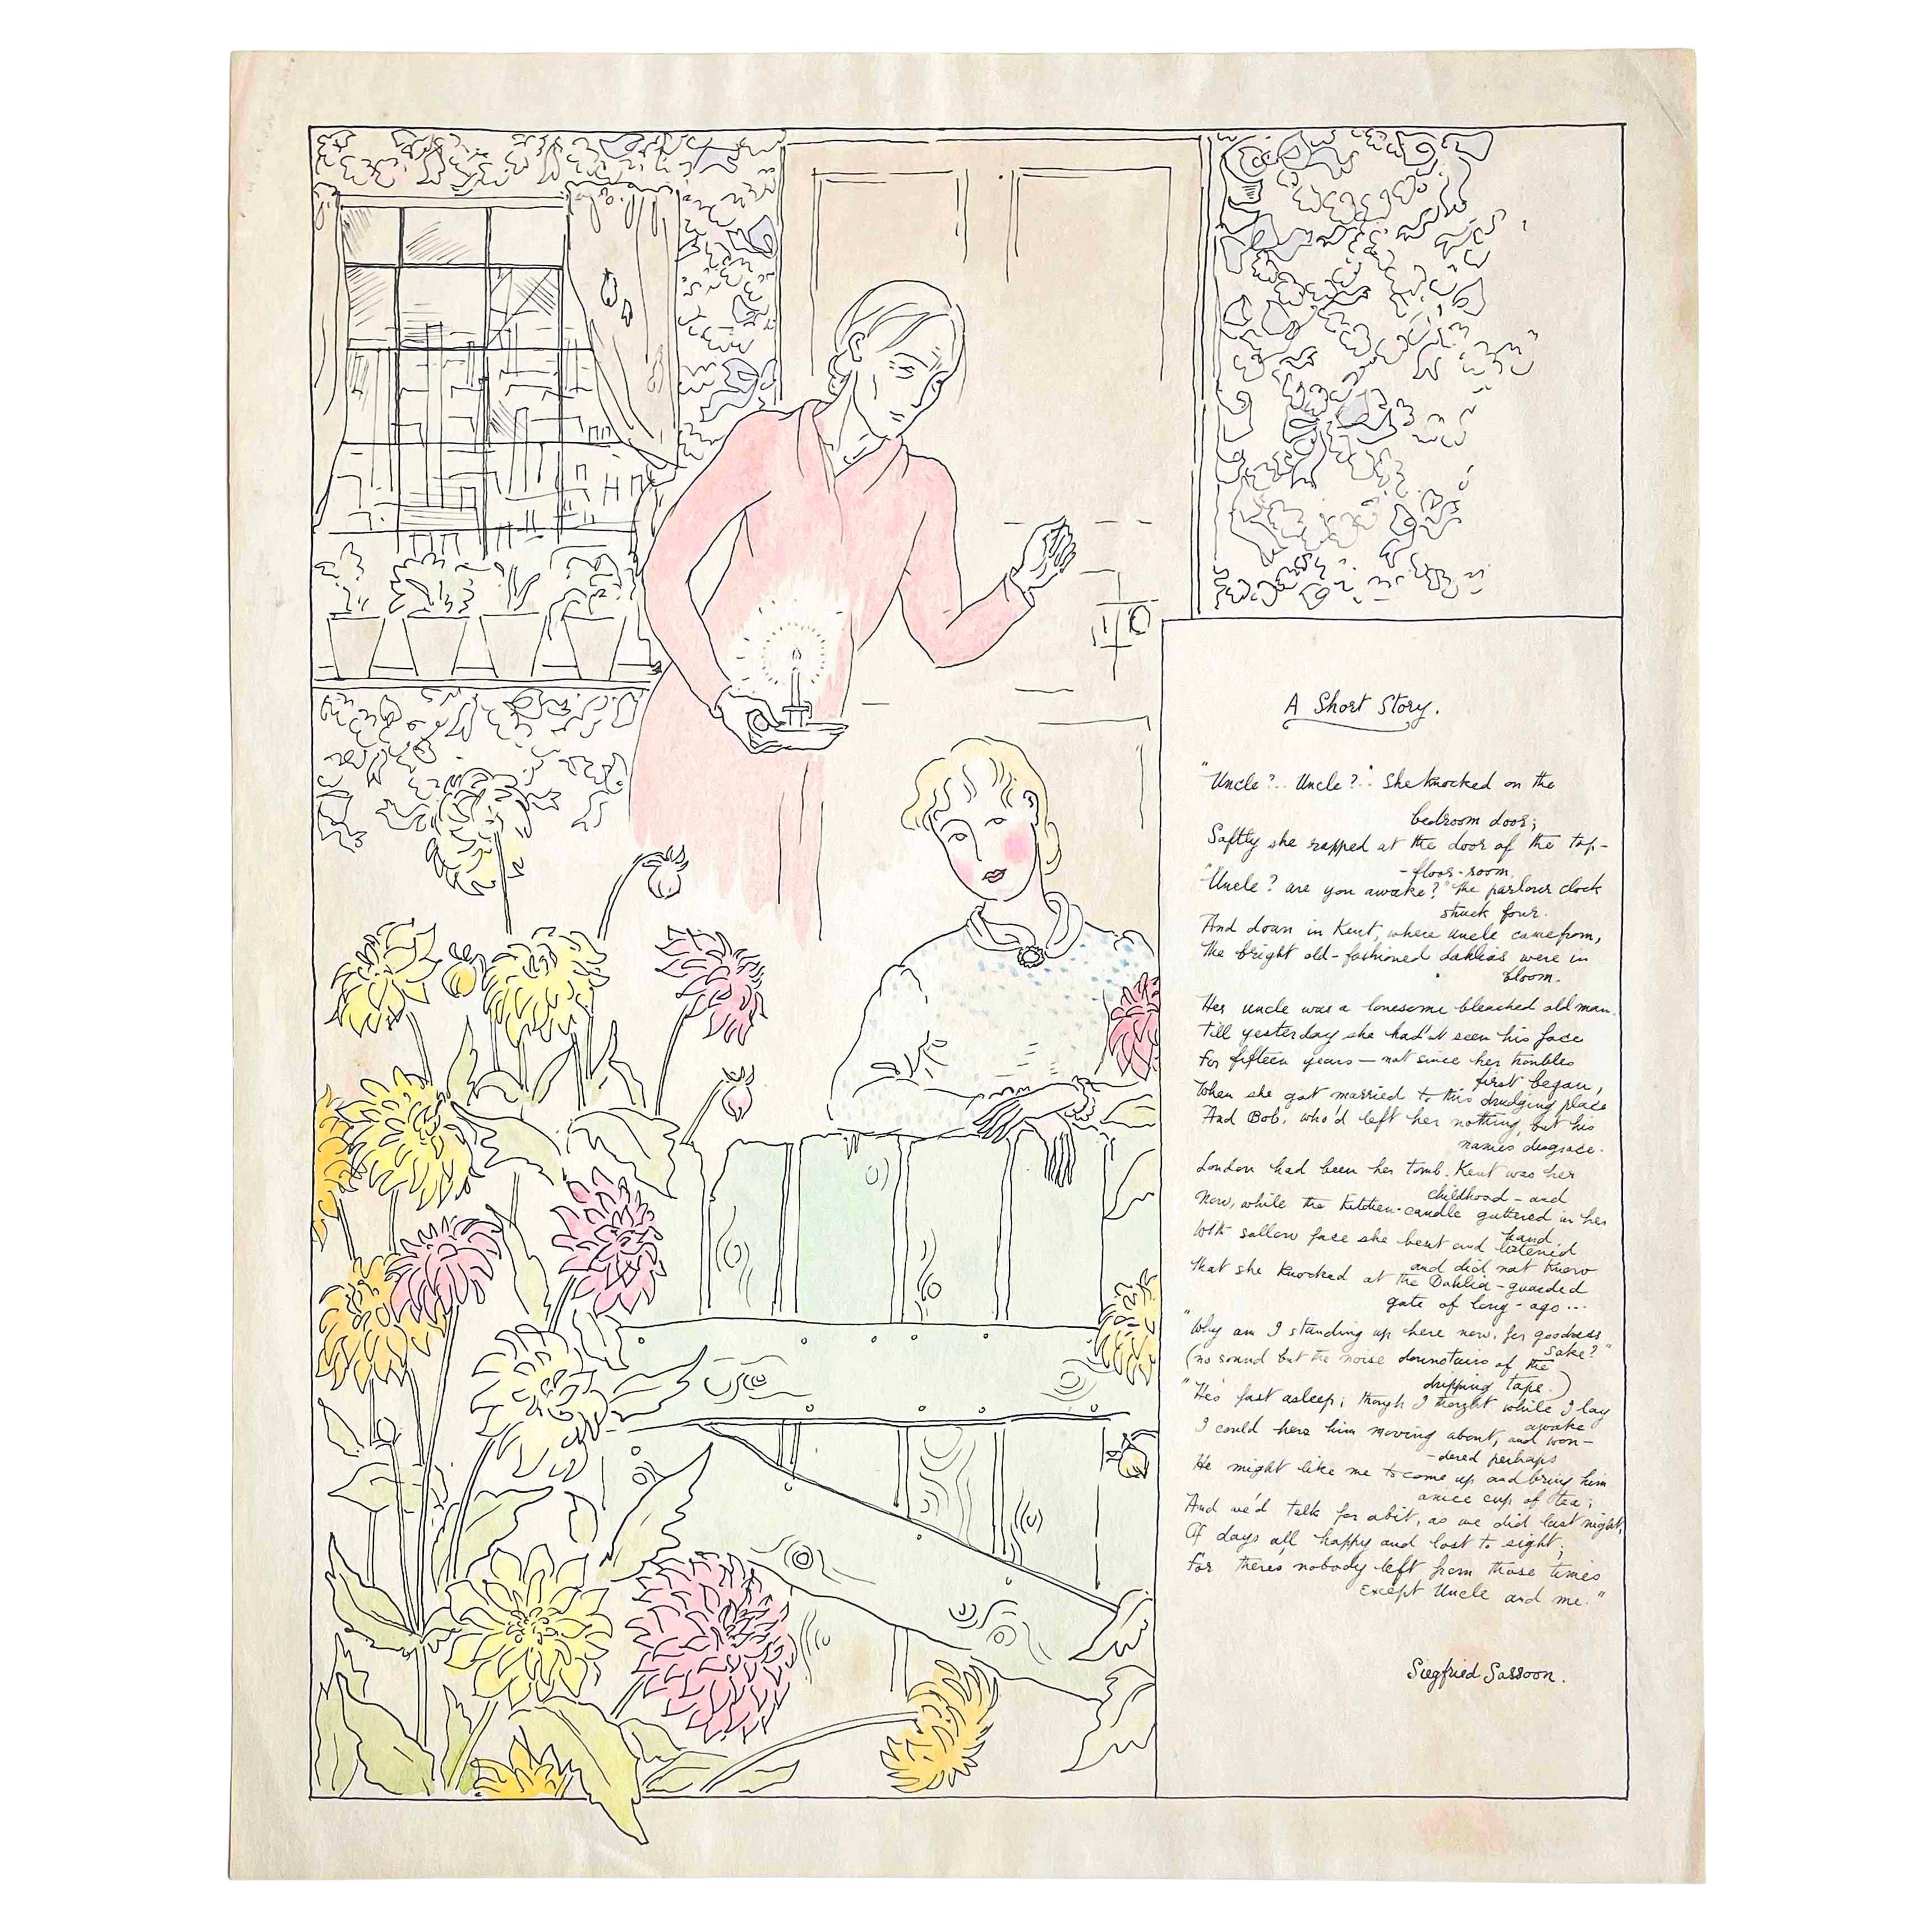 A Short Story.
"Uncle?.. Uncle?.." She knocked on the
bedroom door;
Softly she rapped at the door of the top-
-floor-room.
"Uncle? are you awake?" The parlour clock
struck four.
And down in Kent, where Uncle came from,
The bright old-fashioned dahlias were in
bloom.
Her uncle was a lonesome bleached old man.
Till yesterday she had'nt seen his face
For fifteen years — not since her troubles
first began,
When she got married to this drudging place
And Bob, who'd left her nothing, but his
name's disgrace.
London had been her tomb. Kent was her
childhood — and
Now, while the kitchen-candle guttered in her
hand
With sallow face she bent and listened
and did not know
That she knocked at the Dahlia-guarded
gate of long-ago...
"Why am I standing up here now, for goodness
sake?"
(no sound but the noise downstairs of the
dripping tape.)
"He's fast asleep; though I thought while I lay
awake
I could hear him moving about, and won-
-dered perhaps
He might like me to come up and bring him
a nice cup of tea;
And we'd talk for a bit, as we did last night,
Of days all happy and lost to sight;
For there's nobody left from those times
Except Uncle and me."
Siegfried Sassoon.